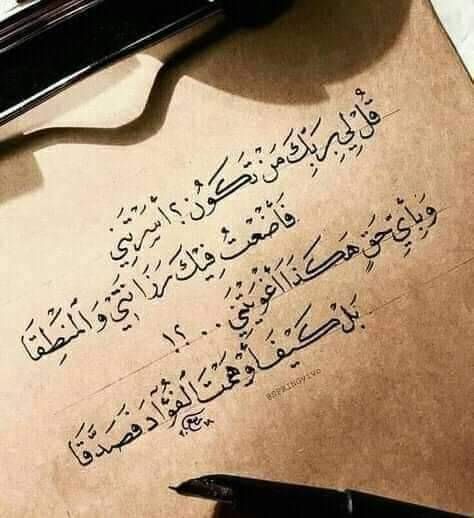 قُلْ لِي بِرَبِّكَ مَنْ تَكُونُ؟ أَسَرْتَنِي
فَأَضَعْتُ فِيْكَ رَزَانَتِيْ وَالْمَنْطِقَا
وَبِأَيِّ حَقٍ هَكَذَا أَغْوَيْتَنِي ..؟!
بَلْ كَيْفَ أَوْهَمْتَ الْفُؤَادَ فَصَدَّقَا